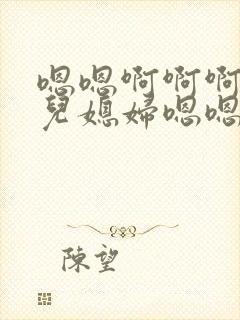 嗯嗯啊啊啊
兒媳婦嗯嗯
陳望